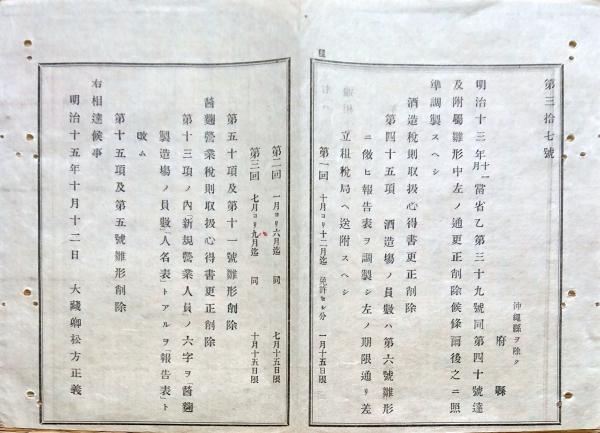 第三拾七號
沖繩縣ヲ除ク
府縣
明治十三年十一月當省乙第三十九號同第四十號達
及附屬雛形中左ノ通更正削除候條爾後之ニ照
準調製スヘシ
酒造稅則取扱心得書更正削除
第四十五項 酒造塲ノ員數ハ第六號雛形
ニ傚ヒ報告表ヲ調製シ左ノ期限通リ差
立租稅局ヘ送附スヘシ
第一回 十月ヨリ十二月迄 免許セシ分 一月十五日限
第二回 一月ヨリ六月迄 同 七月十五日限
第三回 七月ヨリ九月迄 同 十月十五日限
第五十項及第十一號雛形削除
醬麹營業稅則取扱心得書更正削除
第十三項ノ內「新規營業人員」ノ六字ヲ「醬麹
製造塲ノ員數」「人名表」トアルヲ「報告表」ト
改ム
第十五項及第五號雛形削除
右相達候事
明治十五年十月十二日 大藏卿松方正義